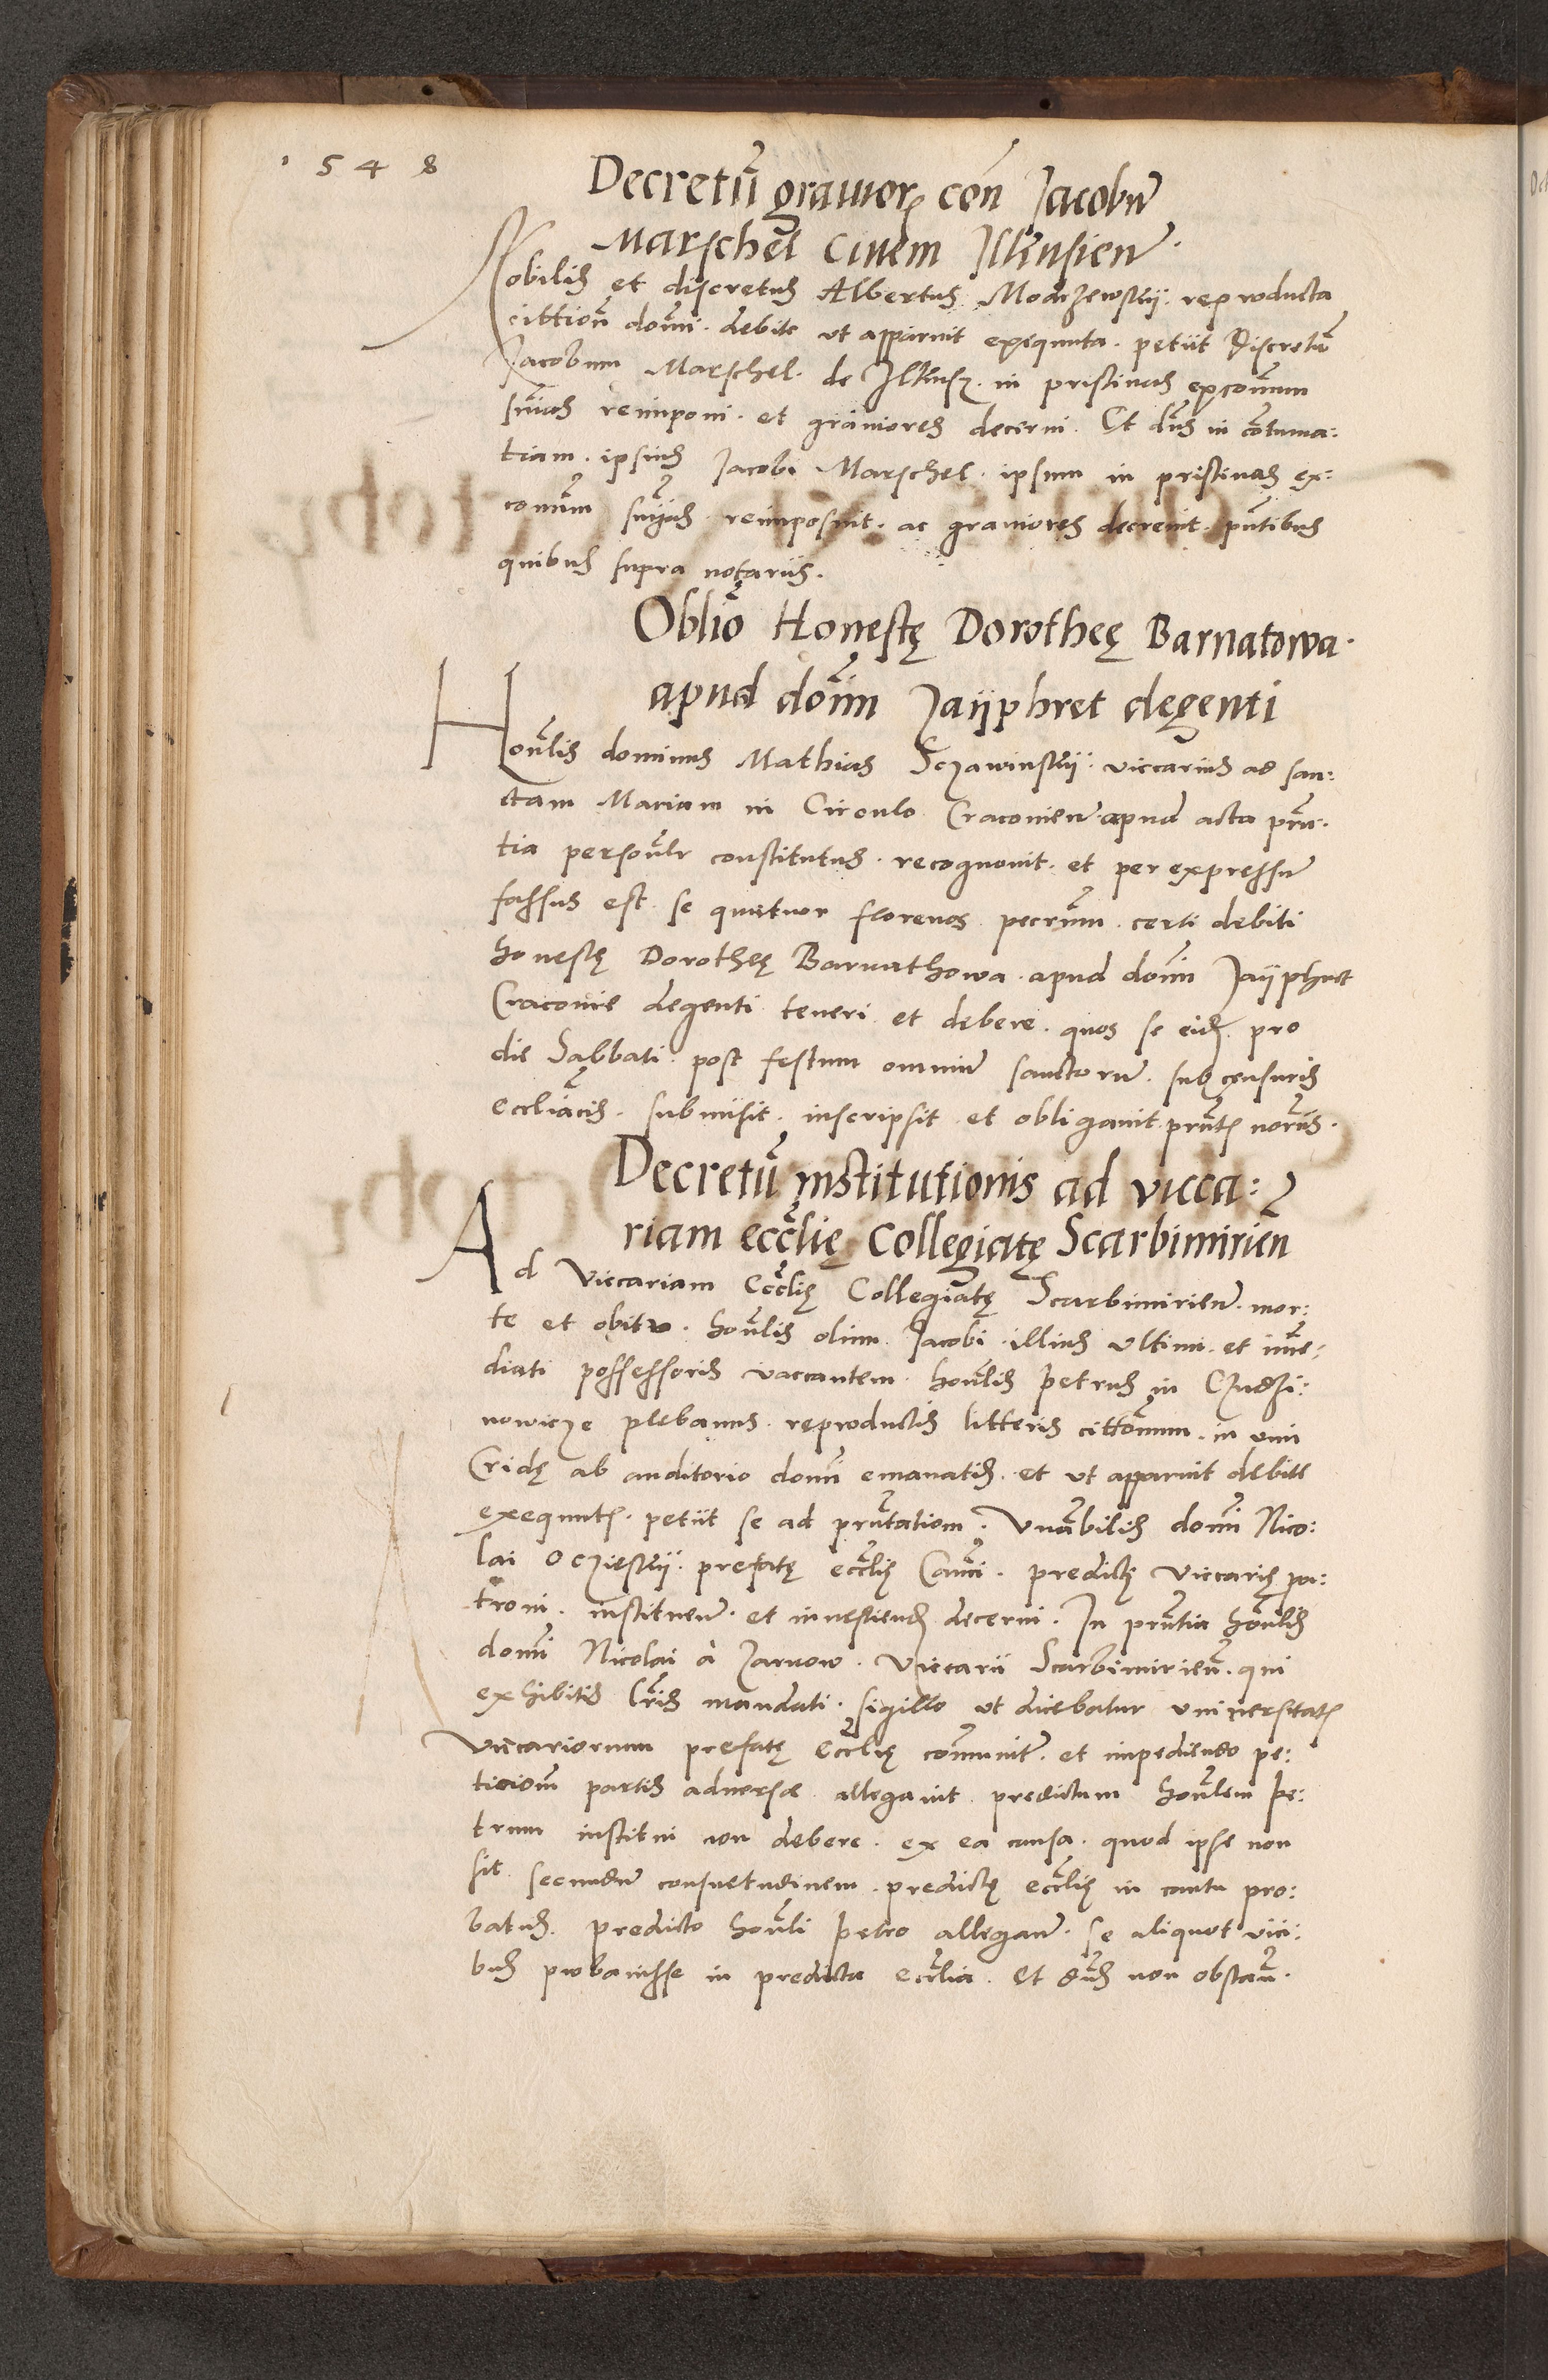 1548
Decretũ grauior̃ cen̄ Jacobũ
Marschel Ciuem Ilkusień.
Nobilis et discretus Albertus Modrzewskij. reproducta
cittioñ domĩ. debite ut apparuit exequuta. petiit discretũ
Jacobum Marschel. de Ilkusz. in pristinas excoĩcum
snĩas reimponi. et grauiores decerni. Et dñs in cõtuma:
tiam. ipsius Jacobi Marschel. ipsum in pristinas ex:
comum̃ snĩas reimposuit. ac grauiores decreuit. pñtibus
quibus supra notariis.
Oblio Honestę Dorotheę Barnatowa.
apud doñm Jaijphret degenti
Honĩlis dominus Mathias Sczawinskij. viccarius ad san:
ctam Mariam in Circulo Cracouień. apud acta prñ:
tia personl̃r constitutus. recognouit. et per expressũ
fassus est. se quatuor florenos. pecũm. certi debiti
honestę Dorotheę Barnathowa. apud doñm Jaijphret
Cracouie degenti teneri. et debere. quos se eid. pro
die Sabbati. post festum omniũ sanctorũ. sub censuris
eccliãcis. submisit. inscripsit. et obligauit. prñt. norĩis.
Decretũ institutionis ad vicca:
riam ecc̃lię Collegiatę Scarbimirień
Ad Viccariam Ecc̃lię Collegiatę Scarbimirień. mor:
te et obitu. honĩlis olim Jacobi. illius ultimi. et imẽ:
diati possessoris vaccantem. honĩlis Petrus in Czudzi:
nowicze plebanus. reproductis litteris cittõnum. in vim
Cridę ab auditorio domĩ emanatis. et ut apparuit debite
exequut. petiit se ad prñtatiom. Vnãbilis domĩ Nico:
lai Oczieskij. prefatę ecc̃lię Canĩci. predictę Viccarię pa:
troni. instituen̄. et inuestiend. decerni. In prñtia honĩlis
domĩ Nicolai à Zarnow. Viccarii Scarbimirień. qui
exhibitis lr̃is mandati. sigillo ut dicebatur uniuersitat
Viccariorum prefatę ecc̃lię cõmunit̃. et impediendo pe:
ticiom̃ partis aduersæ allegauit predictum honĩlem Pe:
trum institui non debere. ex ea causa. quod ipse non
sit secundũ consuetudinem. predictę ecc̃lię in cantu pro:
batus. predicto honĩli Petro allegan̄. se aliquot vici:
bus probauisse in predicta ecc̃lia. Et dñs non obstan̄.